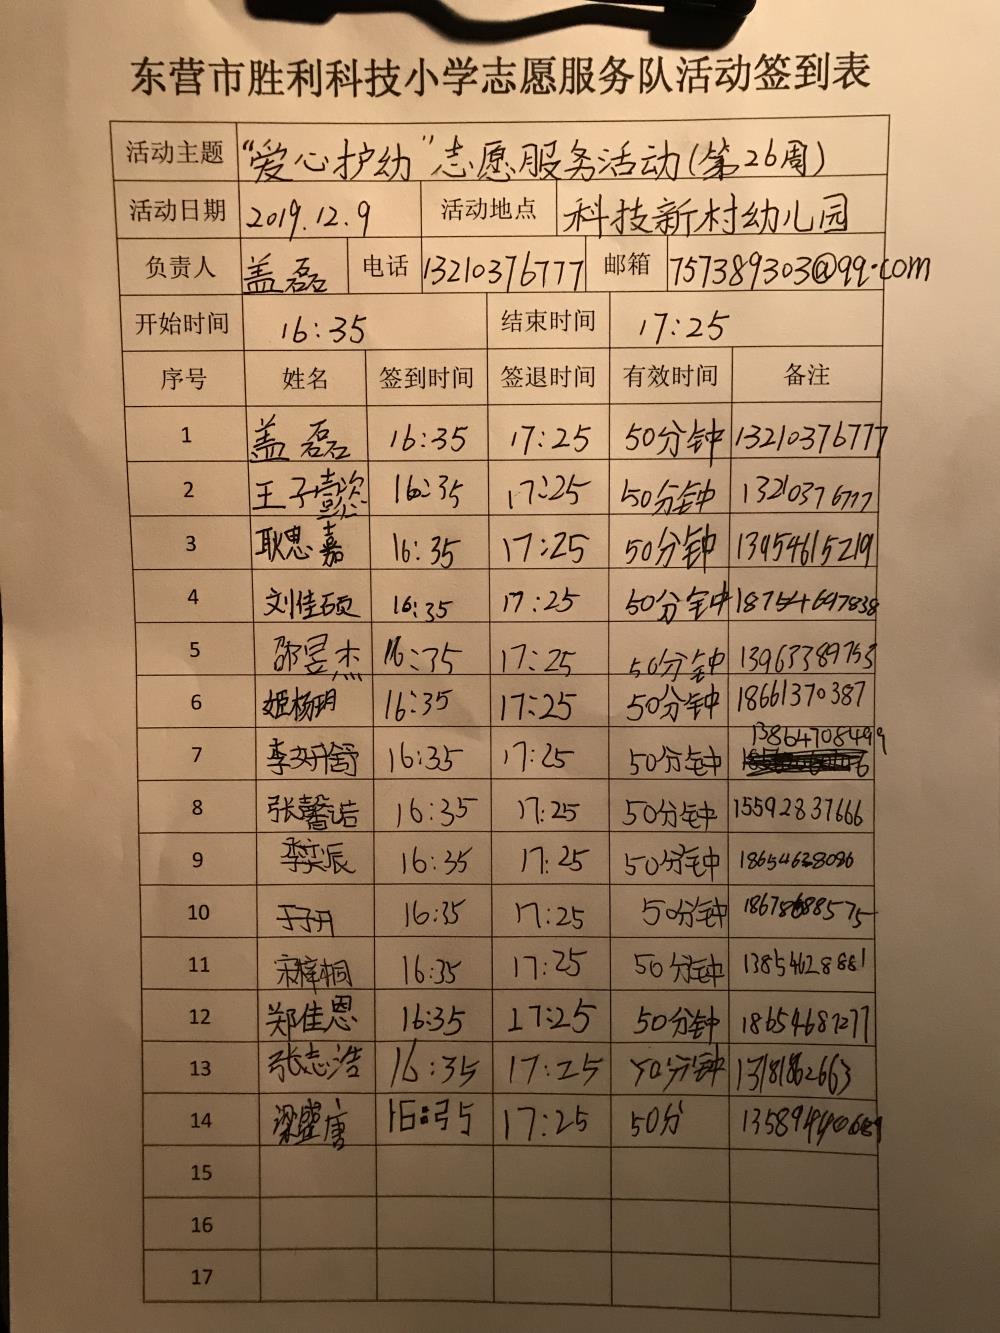 东营市胜利科技小学志愿服务队活动签到表
活动主题 “爱心护幼”志愿服务活动(第26周)
活动日期 2019.12.9 活动地点 科技新村幼儿园
负责人 盖磊 电话 13210376777 邮箱 757389303@qq.com
开始时间 16:35 结束时间 17:25
序号 姓名 签到时间 签退时间 有效时间 备注
1 盖磊 16:35 17:25 50分钟 13210376777
2 王子懿 16:35 17:25 50分钟 13210376777
3 耿思嘉 16:35 17:25 50分钟 13954615219
4 刘佳硕 16:35 17:25 50分钟 18754697838
5 邵昱杰 16:35 17:25 50分钟 13963389753
6 姬杨玥 16:35 17:25 50分钟 18661370387
7 16:35 17:25 50分钟 13864708499
8 张馨诺 16:35 17:25 50分钟 15592837666
9 李奕辰 16:35 17:25 50分钟 18654628086
10 于子开 16:35 17:25 50分钟
11 宋梓桐 16:35 17:25 50分钟 13854628881
12 郑佳恩 16:35 17:25 50分钟 18654687277
13 张志浩 16:35 17:25 50分钟 13181862663
14 梁盛唐 16:35 17:25 50分
15
16
17